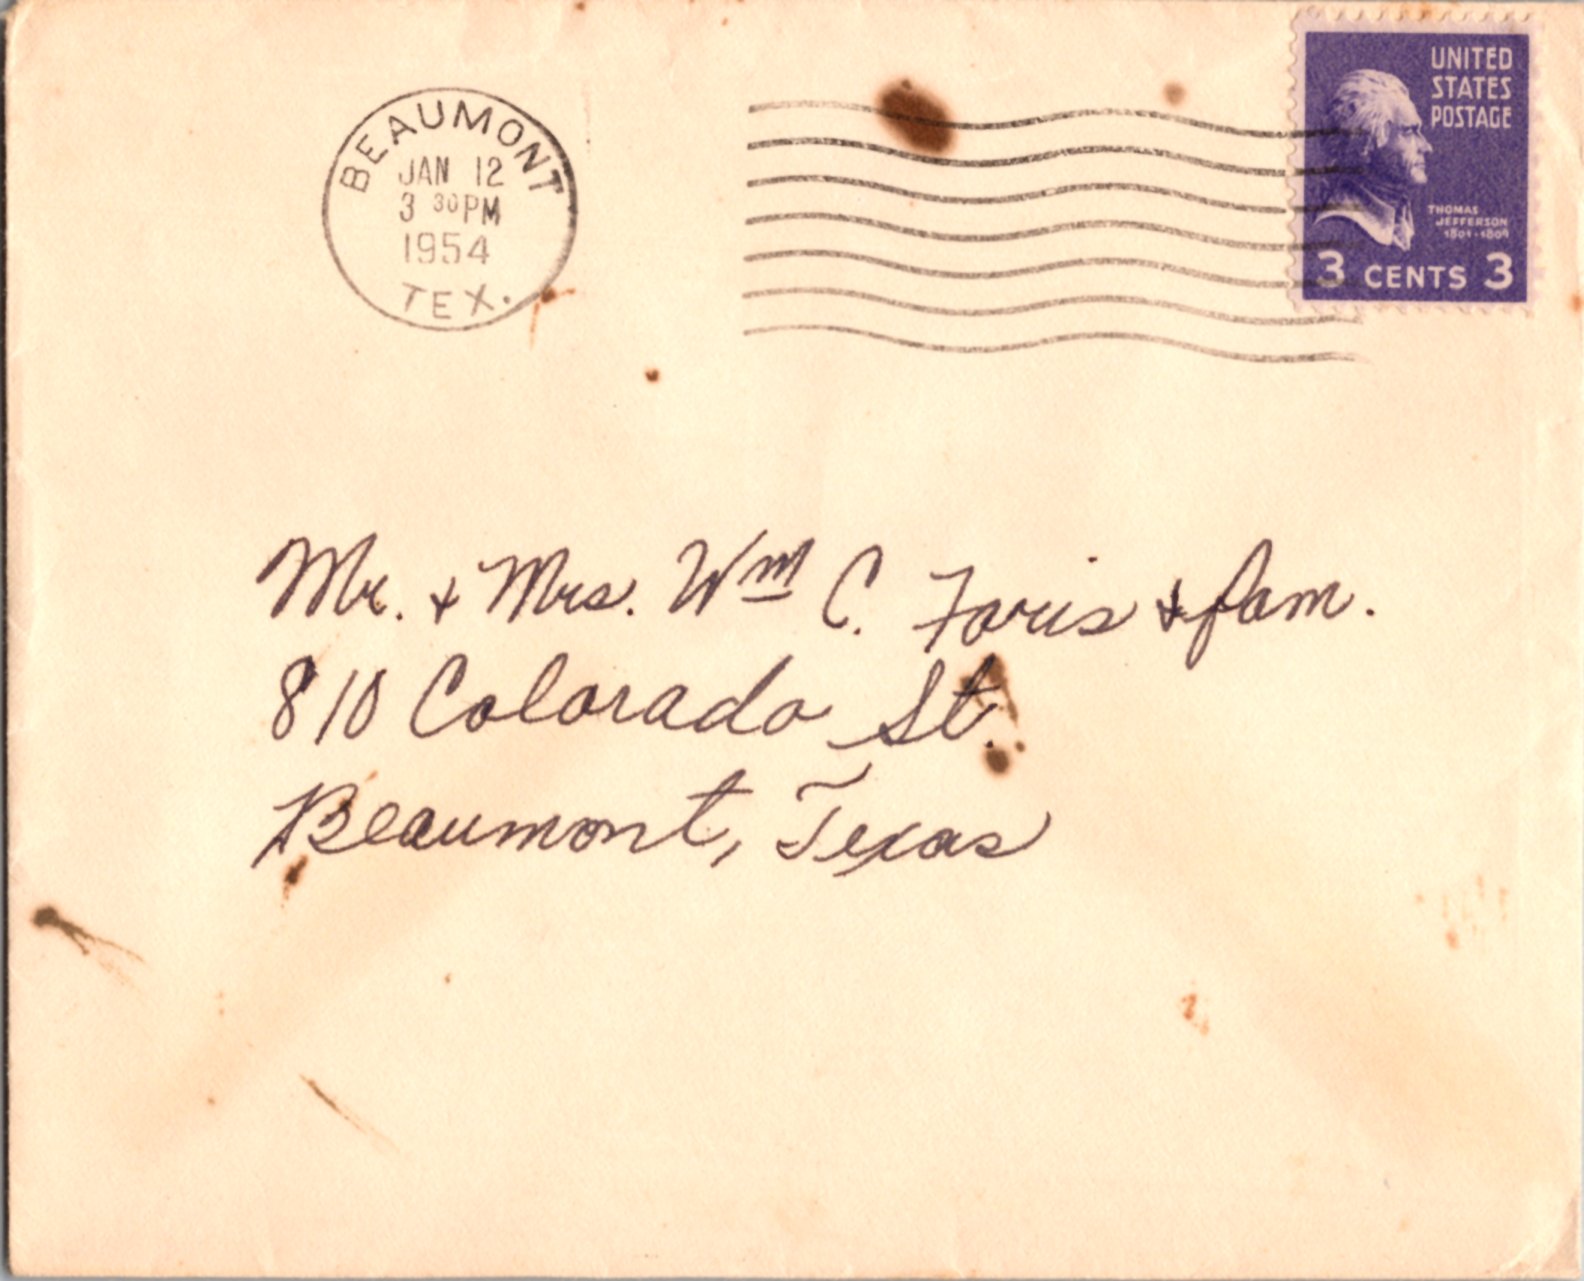 BEAUMONT
JAN 12
3 30 PM
1954
TEX.
UNITED
STATES
POSTAGE
THOMAS
JEFFERSON
1801-1809
3 CENTS 3
Mr. & Mrs. Wm C. Faris & fam.
810 Colorado St.
Beaumont, Texas